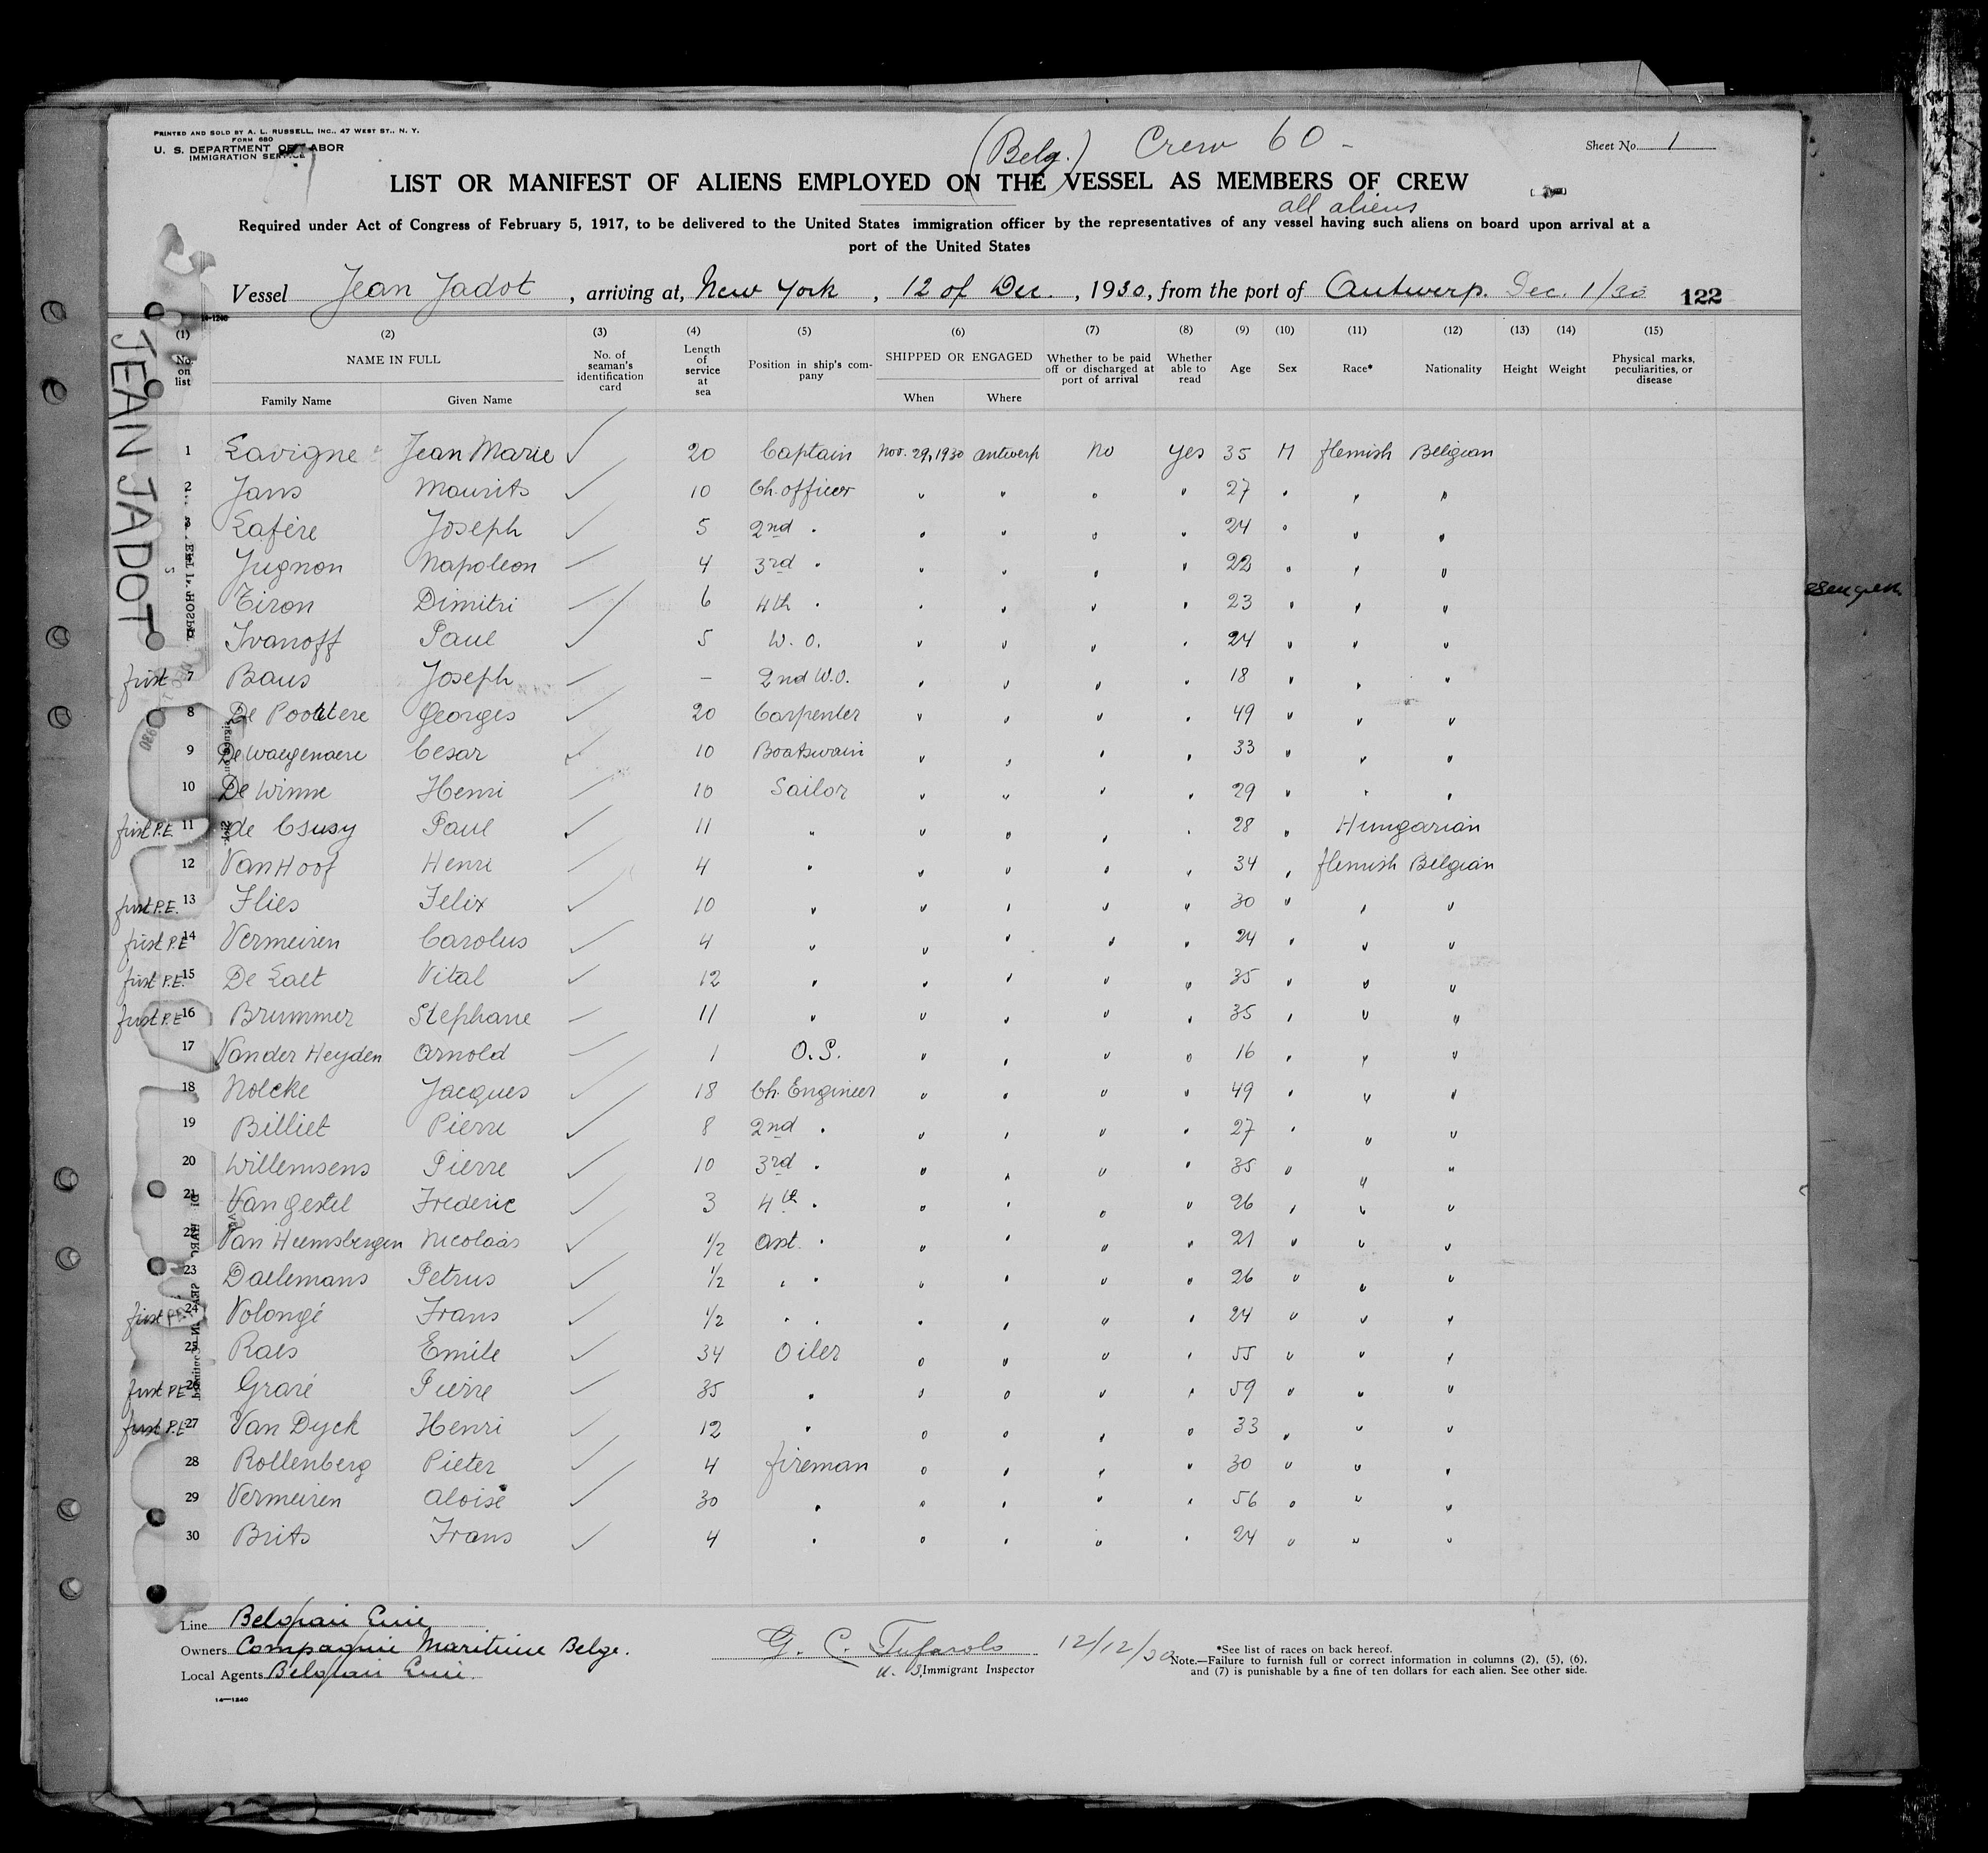 PRINTED AND SOLD BY A. L. RUSSELL, INC., 47 WEST ST., N. Y.
FORM 680
U. S. DEPARTMENT OF LABOR
IMMIGRATION SERVICE
(Belg.) Crew 60 -
Sheet No. 1
LIST OR MANIFEST OF ALIENS EMPLOYED ON THE VESSEL AS MEMBERS OF CREW
all aliens
Required under Act of Congress of February 5, 1917, to be delivered to the United States immigration officer by the representatives of any vessel having such aliens on board upon arrival at a
port of the United States
Vessel Jean Jadot, arriving at, New York, 12 of Dec., 1930, from the port of Antwerp. Dec. 1/30 122
14-1240
JEAN JADOT
(1) (2) (3) (4) (5) (6) (7) (8) (9) (10) (11) (12) (13) (14) (15)
No. on list
NAME IN FULL
Family Name Given Name
No. of seaman's identification card
Length of service at sea
Position in ship's company
SHIPPED OR ENGAGED
When Where
Whether to be paid off or discharged at port of arrival
Whether able to read
Age Sex Race* Nationality Height Weight
Physical marks, peculiarities, or disease
1 Lavigne Jean Marie ✓ 20 Captain Nov. 29, 1930 Antwerp No Yes 35 M flemish Belgian
2 Jans Maurits ✓ 10 Ch. officer " " " " 27 " " "
3 Lafère Joseph ✓ 5 2nd " " " " " 24 " " "
4 Jugnon Napoleon 4 3rd " " " " " 22 " " "
Tiron Dimitri 6 4th " " " " " 23 " " "
Ivanoff Paul ✓ 5 W. O. " " " " 24 " " "
first 7 Baus Joseph — 2nd W.O. " " " " 18 " " "
8 De Poortere Georges ✓ 20 Carpenter " " " " 49 " " "
9 De Waegenaere Cesar ✓ 10 Boatswain " " " " 33 " " "
10 De Winne Henri 10 Sailor " " " " 29 " " "
first P.E. 11 de Csusy Paul ✓ 11 " " " " " 28 " Hungarian
12 Van Hoof Henri 4 " " " " " 34 " flemish Belgian
first P.E. 13 Flies Felix ✓ 10 " " " " " 30 " " "
first P.E. 14 Vermeiren Carolus ✓ 4 " " " " " 24 " " "
first P.E. 15 De Laet Vital ✓ 12 " " " " " 35 " " "
first P.E. 16 Brummer Stephane 11 " " " " " 35 " " "
17 Vander Heyden Arnold 1 O. S. " " " " 16 " " "
18 Nolcke Jacques ✓ 18 Ch. Engineer " " " " 49 " " "
19 Billiet Pierre ✓ 8 2nd " " " " " 27 " " "
20 Willemsens Pierre ✓ 10 3rd " " " " " 35 " " "
21 Van Gestel Frederic ✓ 3 4th " " " " " 26 " " "
22 Van Heemsbergen Nicolaas ✓ 1/2 Asst. " " " " " 21 " " "
23 Daelemans Petrus ✓ 1/2 " " " " " " 26 " " "
first 24 Volongé Frans ✓ 1/2 " " " " " " 24 " " "
25 Raes Emile ✓ 34 Oiler " " " " 55 " " "
first P.E. 26 Graré Pierre ✓ 35 " " " " " 59 " " "
first P.E. 27 Van Dyck Henri ✓ 12 " " " " " 33 " " "
28 Rollenberg Pieter ✓ 4 fireman " " " " 30 " " "
29 Vermeiren Aloise ✓ 30 " " " " " 56 " " "
30 Brits Frans ✓ 4 " " " " " 24 " " "
Line Belgian Line
Owners Compagnie Maritime Belge.
Local Agents Belgian Line.
14—1240
G. C. Tufarolo 12/12/30
U. S. Immigrant Inspector
*See list of races on back hereof.
Note.—Failure to furnish full or correct information in columns (2), (5), (6),
and (7) is punishable by a fine of ten dollars for each alien. See other side.